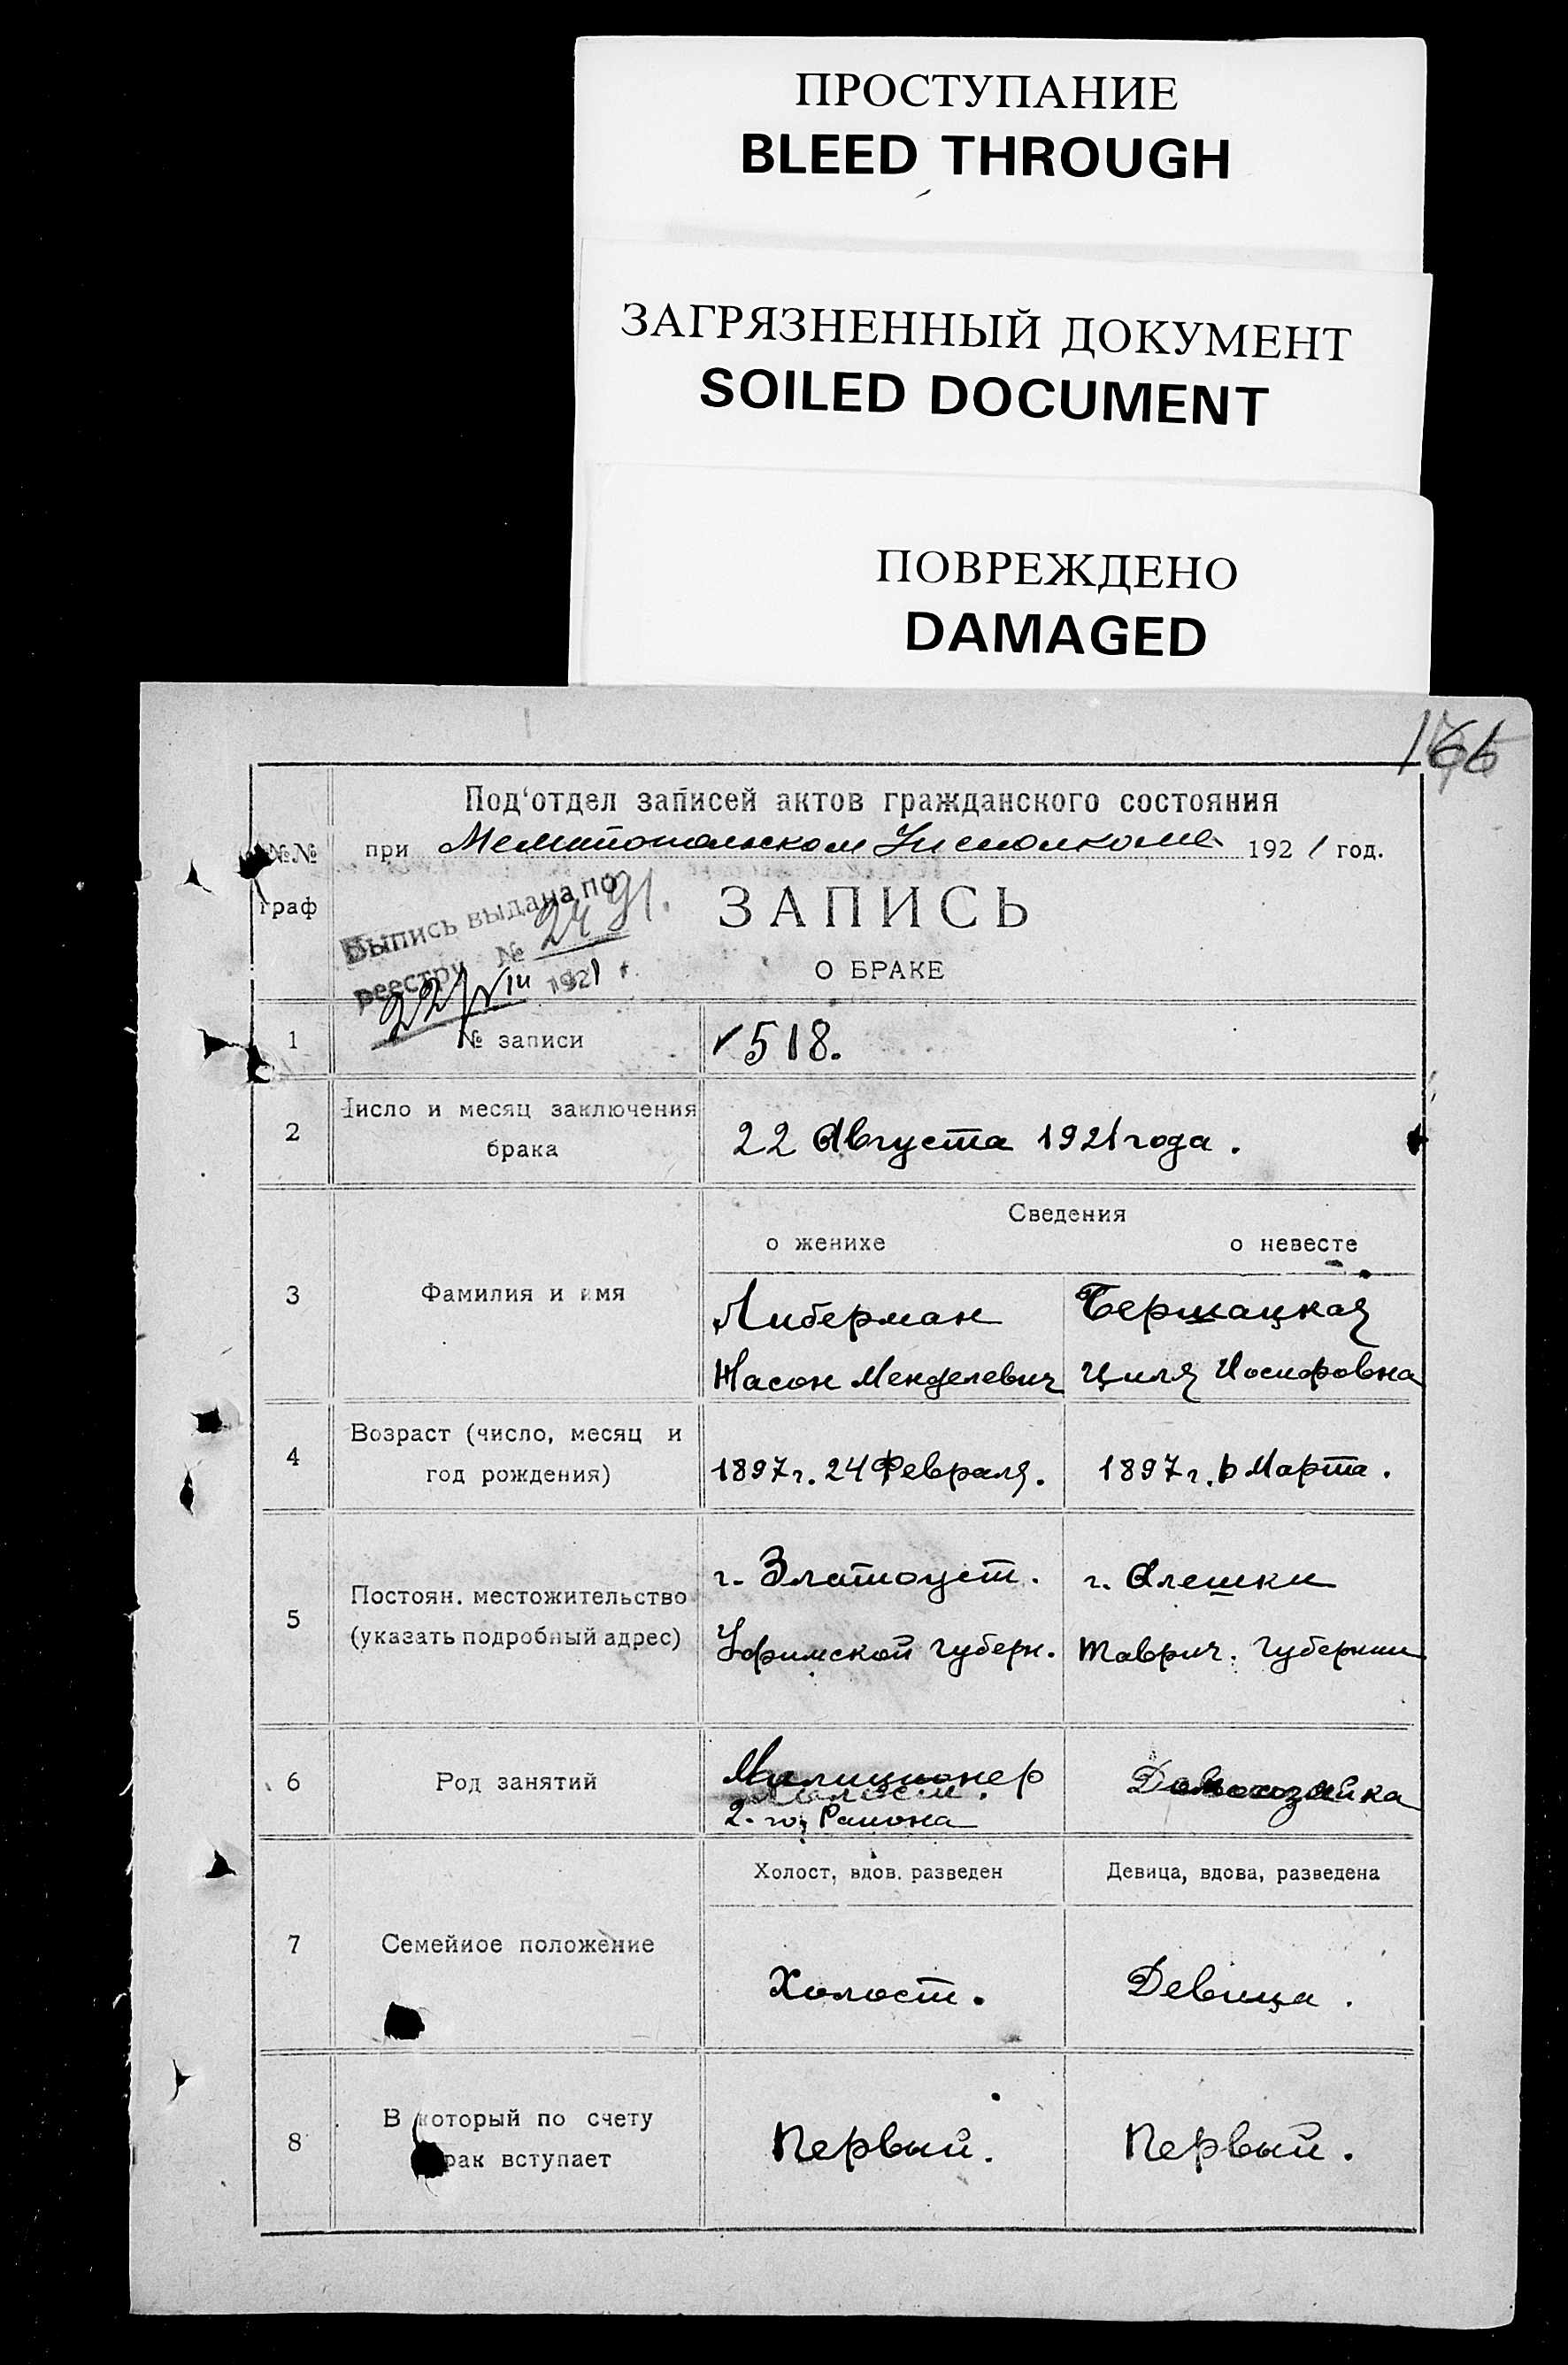 ПРОСТУПАНИЕ
BLEED THROUGH
ЗАГРЯЗНЕННЫЙ ДОКУМЕНТ
SOILED DOCUMENT
ПОВРЕЖДЕНО
DAMAGED
Под'отдел записей актов гражданского состояния
№№ граф
при Мелитопольском Уисполкоме 1921 год.
Выпись выдана по
реестру № 2491.
22/VIII 1921 г.
ЗАПИСЬ
О БРАКЕ
1 № записи 518.
2 Число и месяц заключения
брака
22 Августа 1921 года.
Сведения
о женихе о невесте
3 Фамилия и имя
Либерман Бершацкая
Насон Менделевич Циля Иосифовна
4 Возраст (число, месяц и
год рождения)
1897 г. 24 Февраля. 1897 г. Марта.
5 Постоян. местожительство
(указать подробный адрес)
г. Златоуст. г. Алешки
Уфимской губерн. Таврич. Губернии
6 Род занятий
Милиционер Домохозяйка
2-го Района
Холост, вдов. разведен Девица, вдова, разведена
7 Семейное положение
Холост. Девица.
8 В который по счету
брак вступает
Первый. Первый.